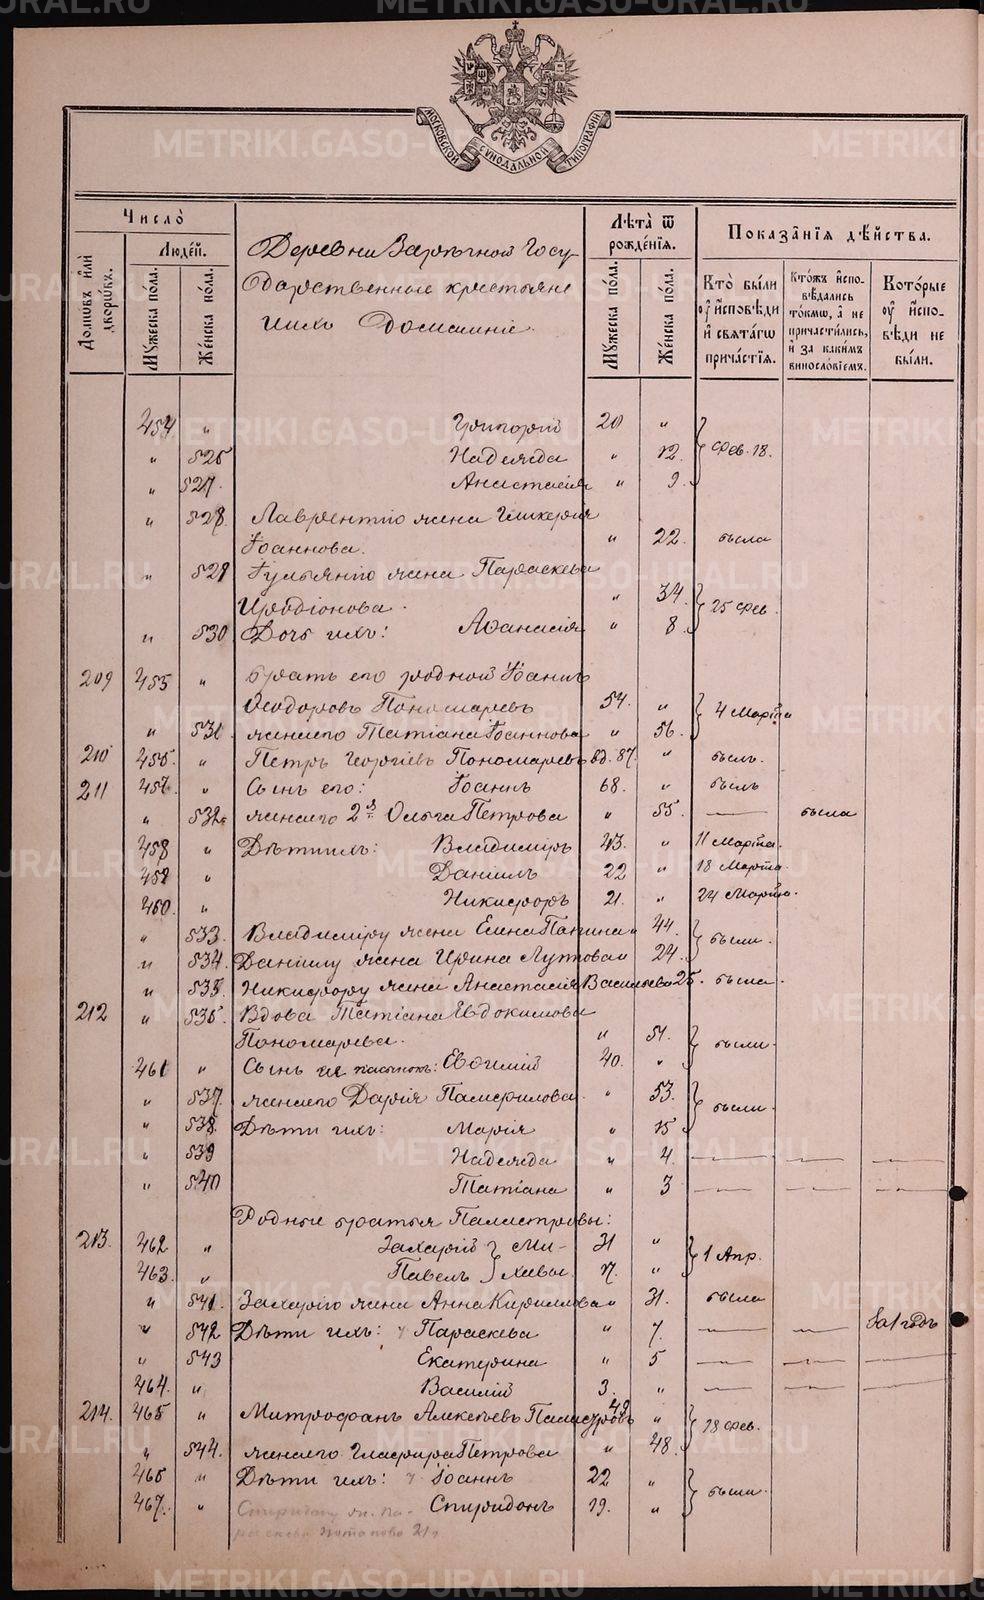 МОСКОВСКОЙ СѴНОДАЛЬНОЙ ТИПОГРАФІИ
Число̀
Люде́й.
Домѡвъ и҆лѝ дворѡ́въ.
Мꙋ́жеска по́ла.
Же́нска по́ла.
Деревни Заречной Госу
дарственные крестьяне
ихъ домашніе.
Лѣта̀ ѿ рожде́нїѧ.
Мꙋ́жеска по́ла.
Же́нска по́ла.
Показа̑нїѧ дѣ́йства.
Кто̀ бы́ли ᲂу҆ и҆сповѣди и҆ свѧта́гѡ прича́стїѧ.
Кто́жъ и҆сповѣ́дались то́кмѡ, а҆ не причасти́лись, и҆ за каки́мъ винослові́емъ.
Кото́рые ᲂу҆ и҆спо́вѣди не бы́ли.
454 " Григорій 20 "
" 526 Надежда " 12. } Фев. 18.
" 527. Анастасія " 9.
" 528. Лаврентію жена Гликерія
Іоаннова. " 22. была
" 529 Іуліянію жена Параскева
Иродіонова. " 34. } 25 Фев.
" 530 Дочь ихъ: Аѳанасія " 8.
209 455 " Братъ его родной Іоаннъ
Ѳеодоровъ Пономаревъ 54. " } 4 Марта
" 531 жена его Татіана Іоаннова " 56.
210 456. " Петръ Георгіевъ Пономаревъ вд. 87. " былъ.
211 457. " Сынъ его: Іоаннъ 68. " былъ
" 532. жена его 2я Ольга Петрова " 55. — была
458 " Дѣти ихъ: Владиміръ 43. " 11 Марта.
459 " Даніилъ 22 " 18 Марта.
460. " Никифоръ 21. " 24 Марта.
" 533. Владиміру жена Елена Панина " 44. } были.
" 534. Даніилу жена Ирина Луппова " 24.
" 535. Никифору жена Анастасія Васильева 25. была.
212 " 536. Вдова Татіана Евдокимова
Пономарева. " 51. } были.
461 " Сынъ ея пасынокъ: Евѳимій 40. "
" 537. жена его Дарія Памфилова " 53. } были.
" 538. Дѣти ихъ: Марія " 15
" 539 Надежда " 4. — — —
" 540 Татіана " 3 — — —
Родные братья Палистровы:
213. 462 " Захарій } Ми- 31 " } 1 Апр.
463. " Павелъ } хаевы. 17. "
" 541. Захарію жена Анна Кириллова " 31. была
" 542 Дѣти ихъ: Параскева " 7. — — За 1 годъ
" 543 Екатерина " 5 — — —
464. " Василій 3. " — — —
214. 465 " Митрофанъ Алексѣевъ Палистровъ 49 " } 28 Фев.
" 544. жена его Глафира Петрова " 48.
466 " Дѣти ихъ: Іоаннъ 22 " } были.
467. " Спиридонъ 19. "
Спиридону ж. Па-
раскева Потапова 21 г.
METRIKI.GASO-URAL.RU